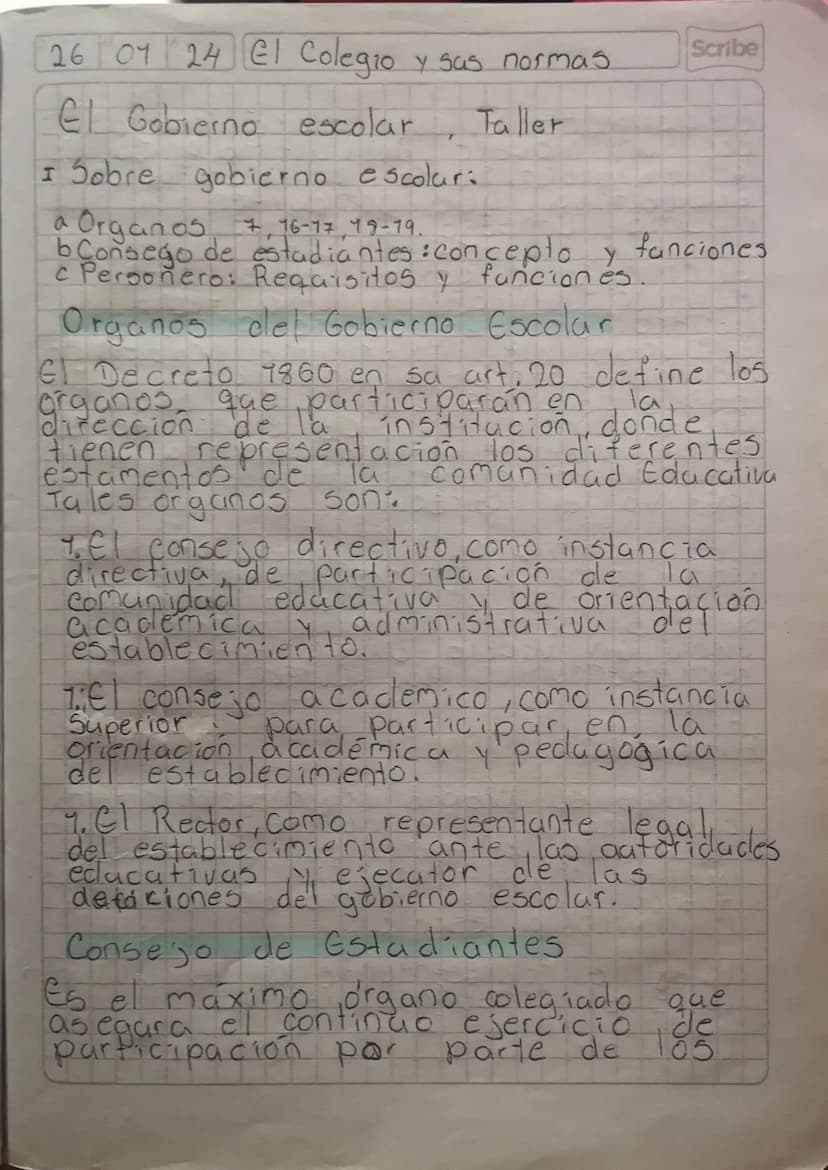 26 01 24 El Colegio y sus normas Scribe
El Gobierno escolar, Taller
I Sobre gobierno escolar:
a Organos 7, 16-17, 19-19.
b Consego de estudiantes: concepto y funciones
c Personero: Requisitos y funciones.
Organos del Gobierno Escolar
El Decreto 1860 en su art. 20 define los
órganos que participarán en la
dirección de la institucion, donde
tienen representación los diferentes
estamentos de la comunidad Educativa
Tales organos son:
1. El consejo directivo, como instancia
directiva, de participación de la
comunidad educativa y de orientación
académica y administrativa del
establecimiento.
1. El consejo academico, como instancia
Superior para participar en la
orientación académica y pedagógica
del establecimiento.
1. El Rector, como representante legal
del establecimiento ante las autoridades
educativas y ejecutor de las
del gobierno escolar.
Consejo de Estudiantes
Es el máximo órgano colegiado que
asegura el continuo ejercicio de
participación por parte de los